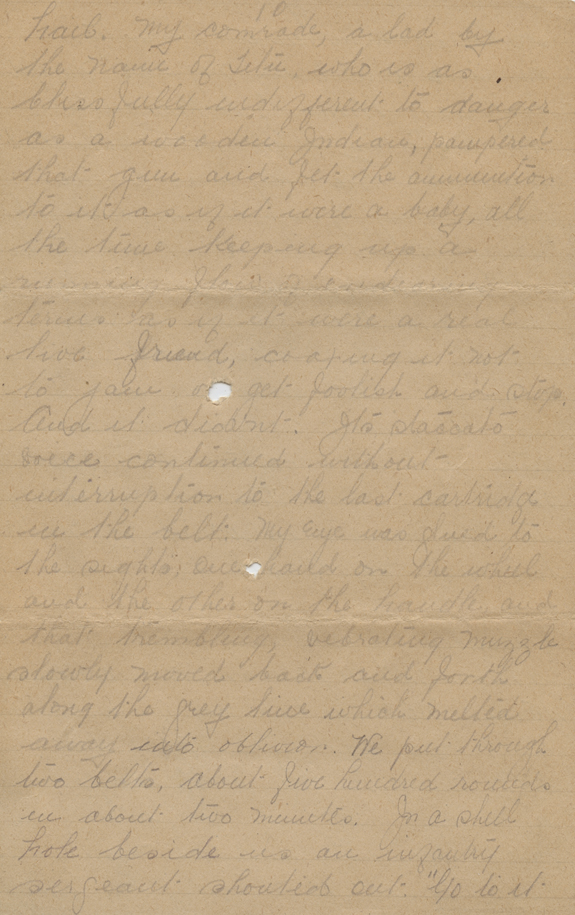 10
hail. My comrade, a lad by
the name of who is as
blissfully indifferent to danger
as a wooden Indian, pampered
that gun and fet the ammunition
to it as if it were a baby, all
the time keeping up a
running of endearing
terms as if it were a real
live friend, coaxing it not
to jam or get foolish and stop.
And it didn't. Its staccato
voice continued without
interruption to the last cartridge
in the belt. My eye was glued to
the sights; one hand on the wheel
and the other on the handle and
that trembling, vibrating muzzle
slowly moved back and forth
along the grey line which melted
away into oblivion. We put through
two belts, about five hundred rounds
in about two minutes. In a shell
hole beside us an infantry
sergeant shouted out: "Go to it